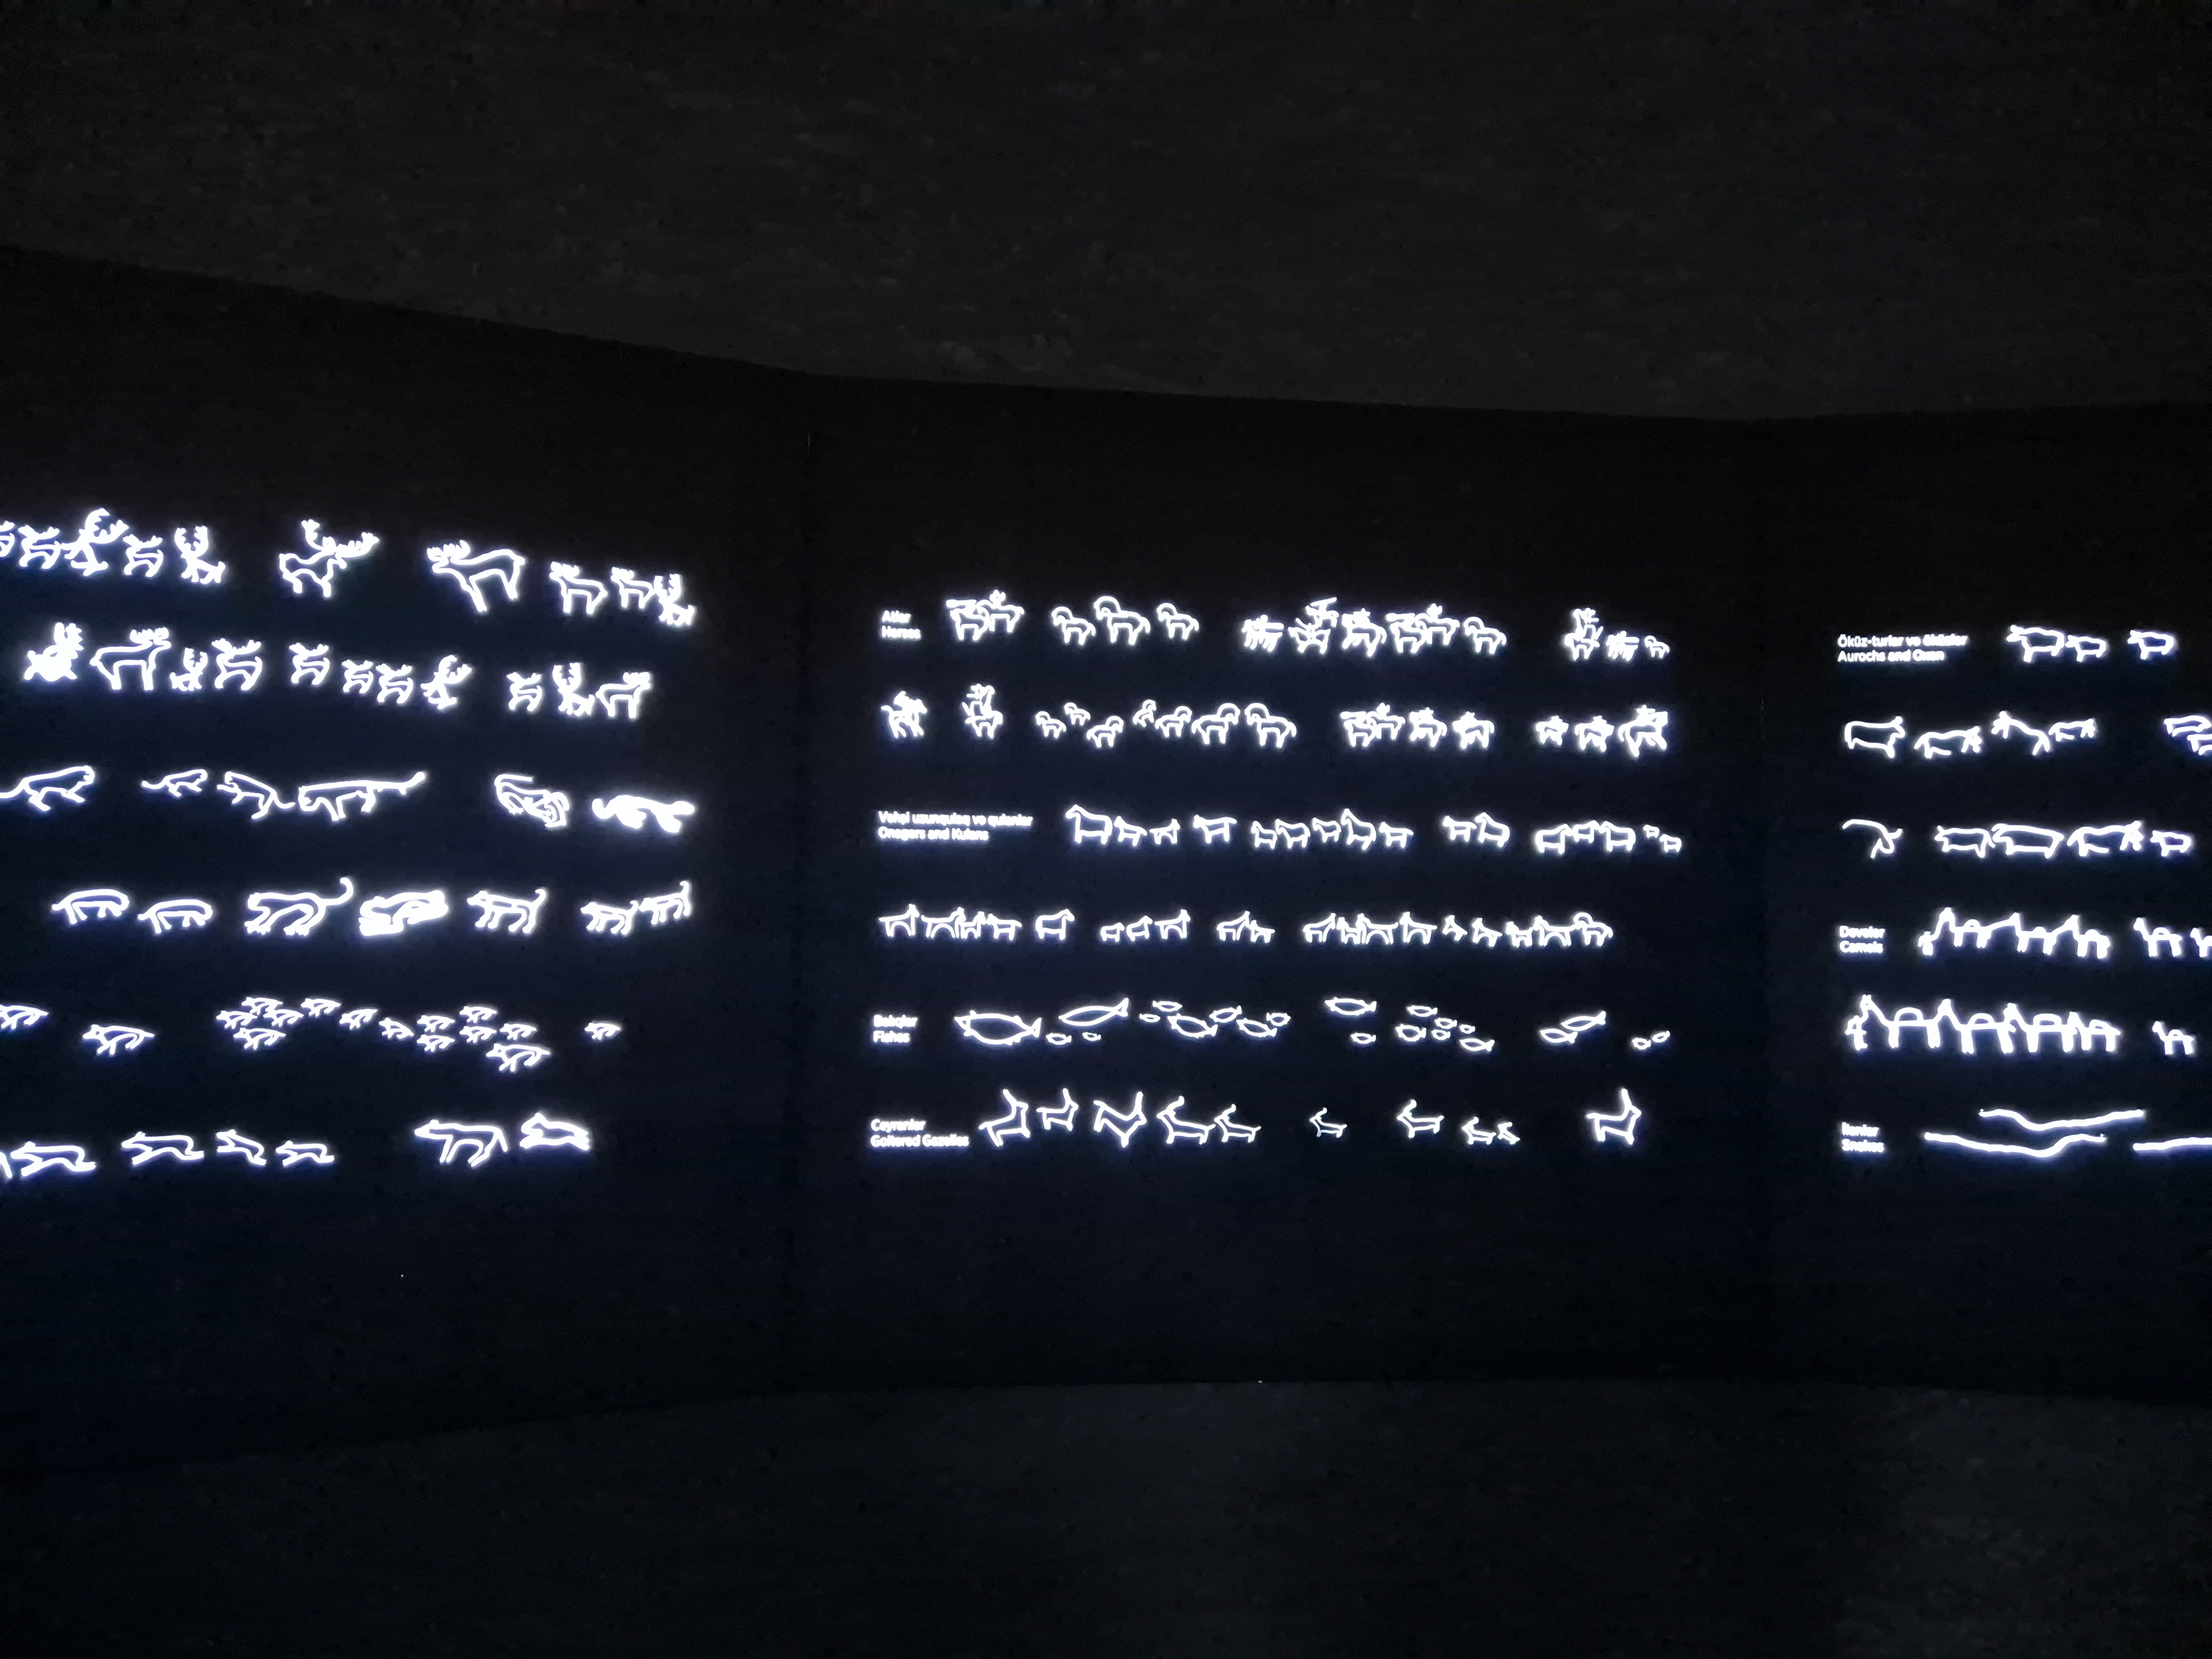 Atlar
Horses
Vəhşi uzunqulaq və qulanlar
Onagers and Kulans
Balıqlar
Fishes
Ceyranlar
Goitered Gazelles
Öküz-turlar və öküzlər
Aurochs and Oxen
Dəvələr
Camels
İlanlar
Snakes